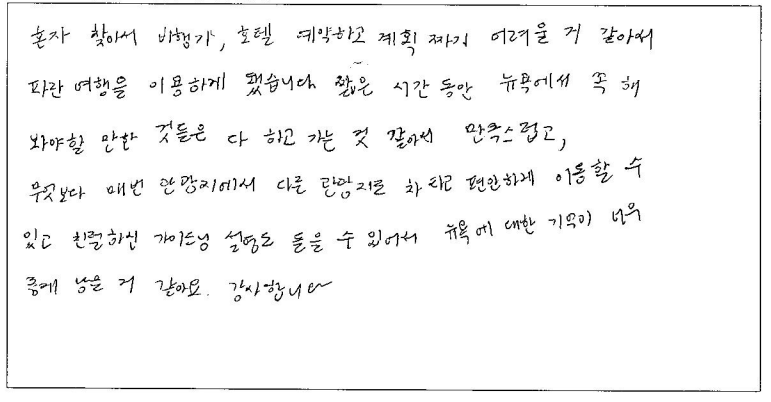 혼자 찾아서 비행기, 호텔 예약하고 계획 짜기 어려울 거 같아서
파란 여행을 이용하게 됐습니다 짧은 시간 동안 뉴욕에서 꼭 해
봐야할 만한 것들은 다 하고 가는 것 같아서 만족스럽고,
무엇보다 매번 관광지에서 다른 관광지로 차 타고 편안하게 이동할 수
있고 친절하신 가이드님 설명도 들을 수 있어서 뉴욕에 대한 기억이 너무
좋게 남을 거 같아요. 감사합니다